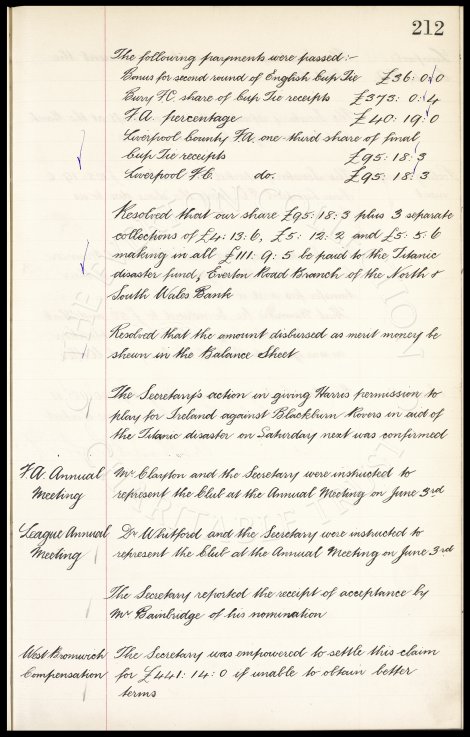 212
The following payments were passed:-
Bonus for second round of English Cup Tie £36: 0: 0
Bury F.C. share of Cup Tie receipts £373: 0: 4
F.A. percentage £40: 19: 0
Liverpool County F.A. one-third share of final
Cup Tie receipts £95: 18: 3
Liverpool F.C. do. £95: 18: 3
Resolved that our share £95: 18: 3 plus 3 separate
collections of £4: 13: 6, £5: 12: 2 and £5: 5: 6
making in all £111: 9: 5 be paid to the Titanic
disaster fund, Everton Road Branch of the North &
South Wales Bank
Resolved that the amount disbursed as merit money be
shewn in the Balance Sheet
The Secretary's action in giving Harris permission to
play for Ireland against Blackburn Rovers in aid of
the Titanic disaster on Saturday next was confirmed
F.A. Annual Meeting
Mr Clayton and the Secretary were instructed to
represent the Club at the Annual Meeting on June 3rd
League Annual Meeting
Dr Whitford and the Secretary were instructed to
represent the Club at the Annual Meeting on June 3rd
The Secretary reported the receipt of acceptance by
Mr Bainbridge of his nomination
West Bromwich Compensation
The Secretary was empowered to settle this claim
for £441: 14: 0 if unable to obtain better
terms